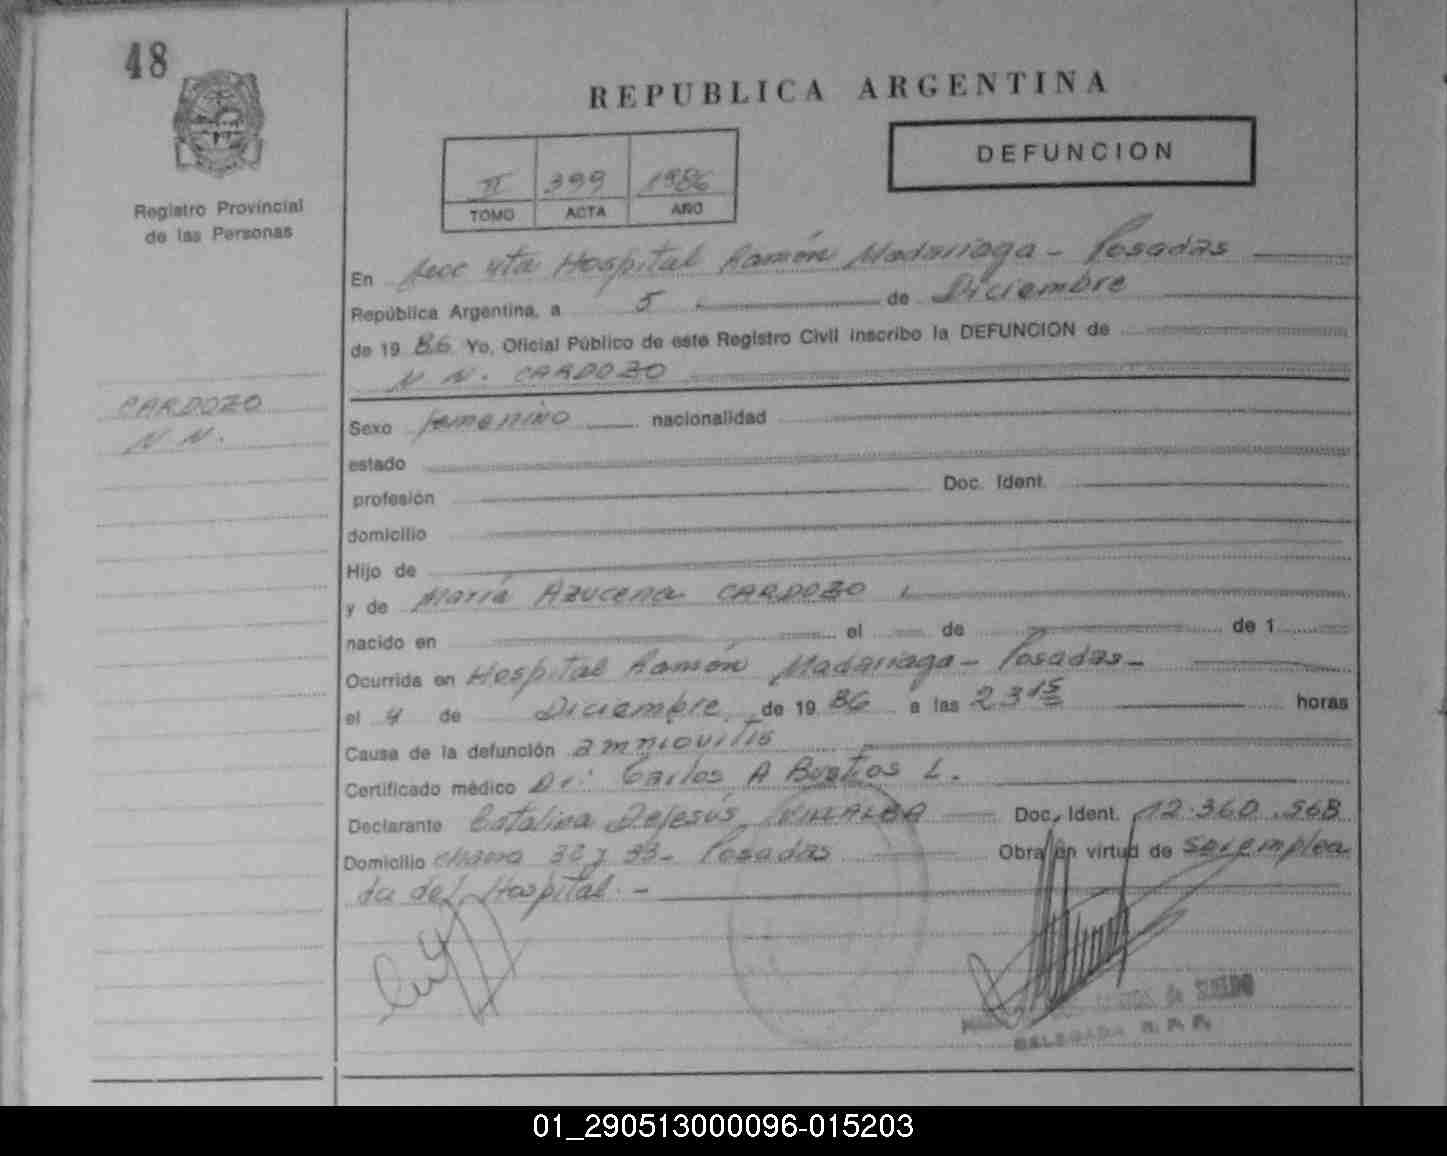 48
REPUBLICA ARGENTINA
DEFUNCION
II 399 1986
TOMO ACTA AÑO
Registro Provincial
de las Personas
En Secc 4ta Hospital Ramón Madariaga - Posadas
República Argentina, a 5 de Diciembre
de 19 86 Yo, Oficial Público de este Registro Civil inscribo la DEFUNCION de
N N. CARDOZO
CARDOZO
N N.
Sexo femenino nacionalidad
estado
profesión Doc. Ident.
domicilio
Hijo de
y de María Azucena CARDOZO
nacido en el de de 1
Ocurrida en Hospital Ramón Madariaga - Posadas -
el 4 de Diciembre de 19 86 a las 23 15 horas
Causa de la defunción amniovitis
Certificado médico Dr: Carlos A Bustos L.
Declarante Catalina DeJesús VILLALBA Doc. Ident. 12.360.568
Domicilio chacra 32 y 33 - Posadas Obra en virtud de ser emplea
da del Hospital. -
de SUELDO
DELEGADA R. P. P.
01_290513000096-015203